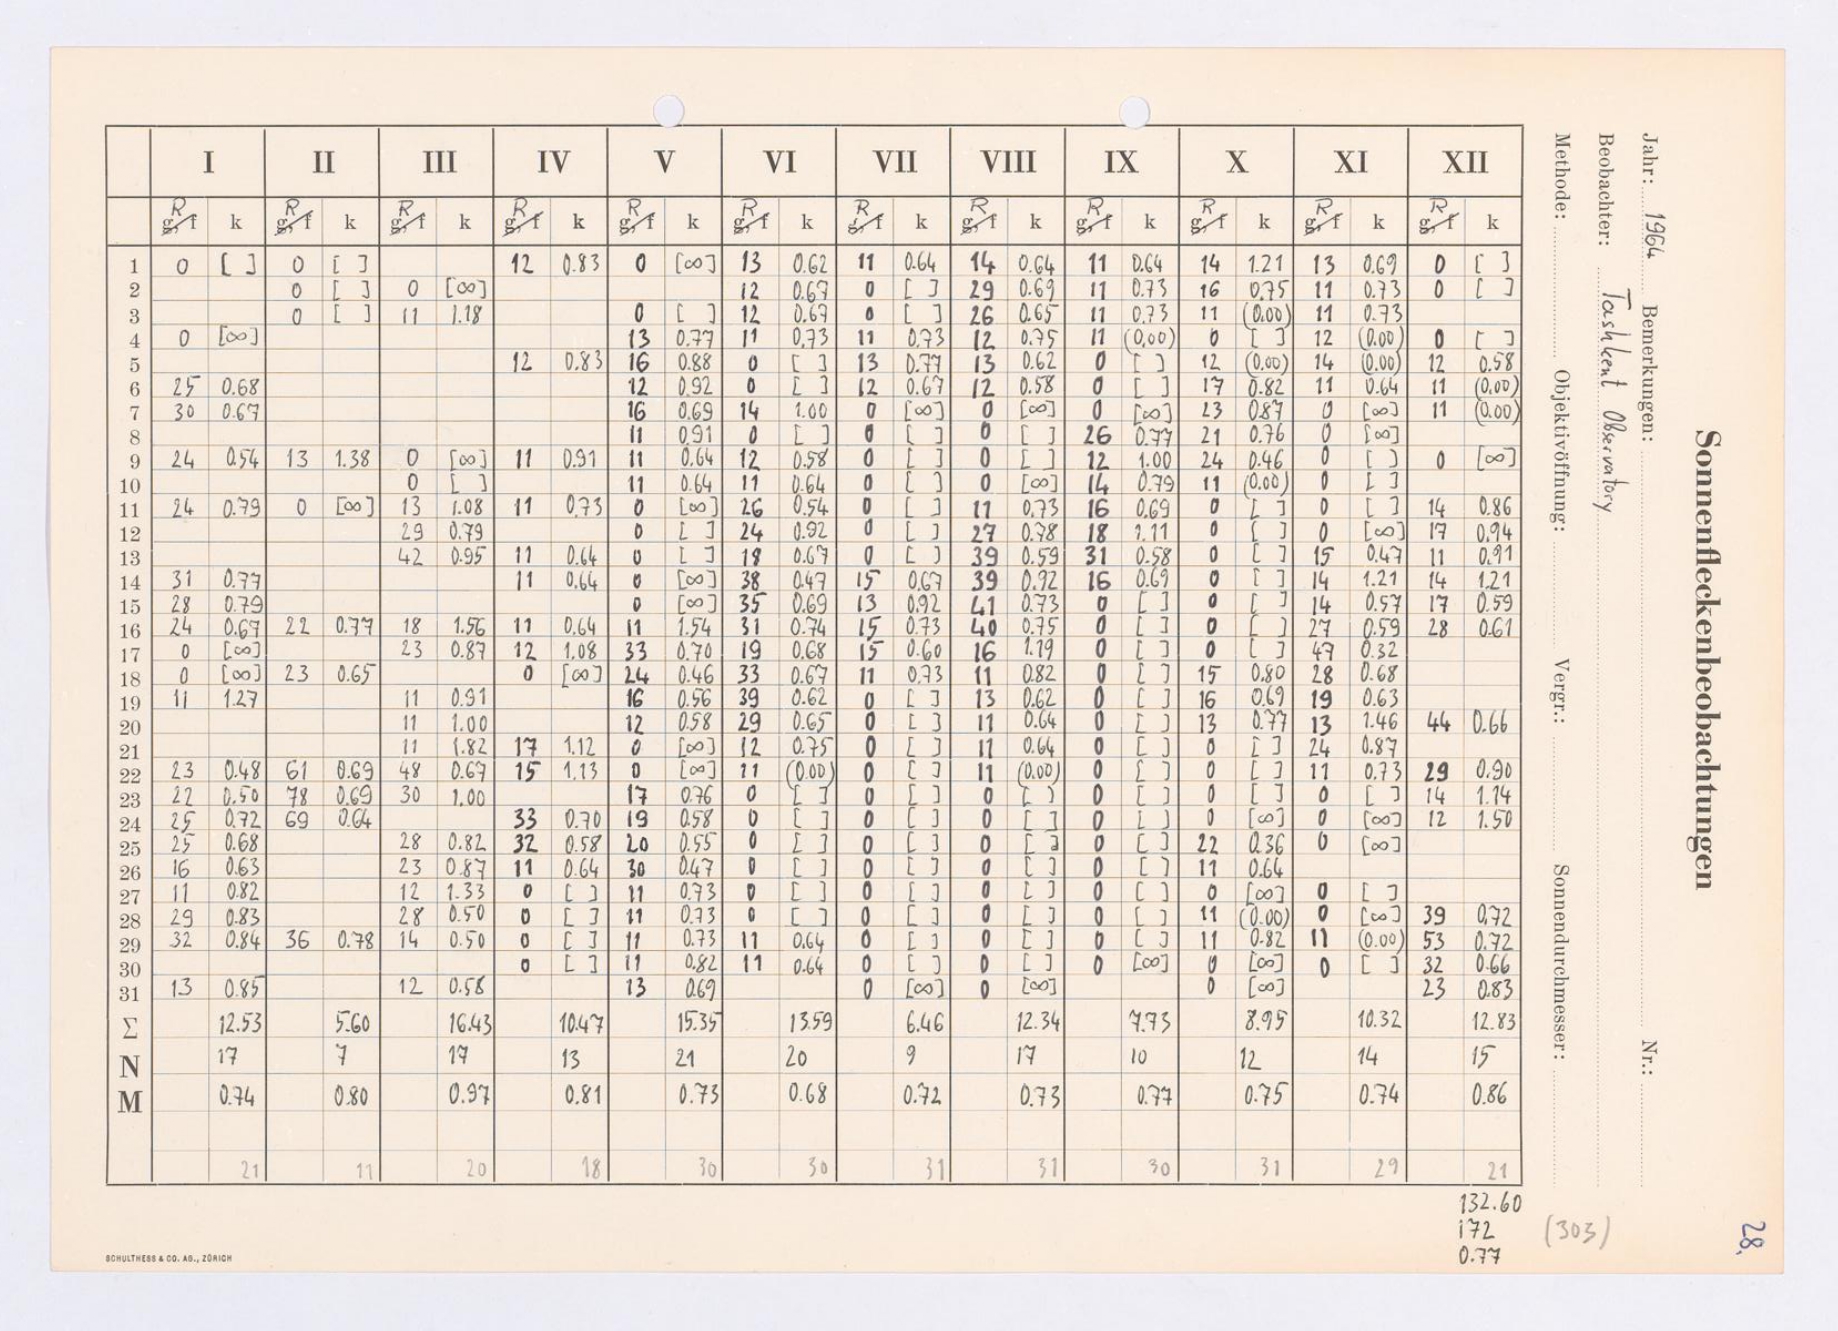 I II III IV V VI VII VIII IX X XI XII
R g,f k R g,f k R g,f k R g,f k R g,f k R g,f k R g,f k R g,f k R g,f k R g,f k R g,f k R g,f k
1 0 [ ] 0 [ ] 12 0.83 0 [∞] 13 0.62 11 0.64 14 0.64 11 0.64 14 1.21 13 0.69 0 [ ]
2 0 [ ] 0 [∞] 12 0.67 0 [ ] 29 0.69 11 0.73 16 0.75 11 0.73 0 [ ]
3 0 [ ] 11 1.18 0 [ ] 12 0.67 0 [ ] 26 0.65 11 0.73 11 (0.00) 11 0.73
4 0 [∞] 13 0.77 11 0.73 11 0.73 12 0.75 11 (0.00) 0 [ ] 12 (0.00) 0 [ ]
5 12 0.83 16 0.88 0 [ ] 13 0.77 13 0.62 0 [ ] 12 (0.00) 14 (0.00) 12 0.58
6 25 0.68 12 0.92 0 [ ] 12 0.67 12 0.58 0 [ ] 17 0.82 11 0.64 11 (0.00)
7 30 0.67 16 0.69 14 1.00 0 [∞] 0 [∞] 0 [∞] 23 0.87 0 [∞] 11 (0.00)
8 11 0.91 0 [ ] 0 [ ] 0 [ ] 26 0.77 21 0.76 0 [∞]
9 24 0.54 13 1.38 0 [∞] 11 0.91 11 0.64 12 0.58 0 [ ] 0 [ ] 12 1.00 24 0.46 0 [ ] 0 [∞]
10 0 [ ] 11 0.64 11 0.64 0 [ ] 0 [∞] 14 0.79 11 (0.00) 0 [ ]
11 24 0.79 0 [∞] 13 1.08 11 0.73 0 [∞] 26 0.54 0 [ ] 11 0.73 16 0.69 0 [ ] 0 [ ] 14 0.86
12 29 0.79 0 [ ] 24 0.92 0 [ ] 27 0.78 18 1.11 0 [ ] 0 [∞] 17 0.94
13 42 0.95 11 0.64 0 [ ] 18 0.67 0 [ ] 39 0.59 31 0.58 0 [ ] 15 0.47 11 0.91
14 31 0.77 11 0.64 0 [∞] 38 0.47 15 0.67 39 0.92 16 0.69 0 [ ] 14 1.21 14 1.21
15 28 0.79 0 [∞] 35 0.69 13 0.92 41 0.73 0 [ ] 0 [ ] 14 0.57 17 0.59
16 24 0.67 22 0.77 18 1.56 11 0.64 11 1.54 31 0.74 15 0.73 40 0.75 0 [ ] 0 [ ] 27 0.59 28 0.61
17 0 [∞] 23 0.87 12 1.08 33 0.70 19 0.68 15 0.60 16 1.19 0 [ ] 0 [ ] 47 0.32
18 0 [∞] 23 0.65 0 [∞] 24 0.46 33 0.67 11 0.73 11 0.82 0 [ ] 15 0.80 28 0.68
19 11 1.27 11 0.91 16 0.56 39 0.62 0 [ ] 13 0.62 0 [ ] 16 0.69 19 0.63
20 11 1.00 12 0.58 29 0.65 0 [ ] 11 0.64 0 [ ] 13 0.77 13 1.46 44 0.66
21 11 1.82 17 1.12 0 [∞] 12 0.75 0 [ ] 11 0.64 0 [ ] 0 [ ] 24 0.87
22 23 0.48 61 0.69 48 0.67 15 1.13 0 [∞] 11 (0.00) 0 [ ] 11 (0.00) 0 [ ] 0 [ ] 11 0.73 29 0.90
23 22 0.50 78 0.69 30 1.00 17 0.76 0 [ ] 0 [ ] 0 [ ] 0 [ ] 0 [ ] 0 [ ] 14 1.14
24 25 0.72 69 0.64 33 0.70 19 0.58 0 [ ] 0 [ ] 0 [ ] 0 [ ] 0 [∞] 0 [∞] 12 1.50
25 25 0.68 28 0.82 32 0.58 20 0.55 0 [ ] 0 [ ] 0 [ ] 0 [ ] 22 0.36 0 [∞]
26 16 0.63 23 0.87 11 0.64 30 0.47 0 [ ] 0 [ ] 0 [ ] 0 [ ] 11 0.64
27 11 0.82 12 1.33 0 [ ] 11 0.73 0 [ ] 0 [ ] 0 [ ] 0 [ ] 0 [∞] 0 [ ]
28 29 0.83 28 0.50 0 [ ] 11 0.73 0 [ ] 0 [ ] 0 [ ] 0 [ ] 11 (0.00) 0 [∞] 39 0.72
29 32 0.84 36 0.78 14 0.50 0 [ ] 11 0.73 11 0.64 0 [ ] 0 [ ] 0 [ ] 11 0.82 11 (0.00) 53 0.72
30 0 [ ] 11 0.82 11 0.64 0 [ ] 0 [ ] 0 [∞] 0 [∞] 0 [ ] 32 0.66
31 13 0.85 12 0.58 13 0.69 0 [∞] 0 [∞] 0 [∞] 23 0.83
Σ 12.53 5.60 16.43 10.47 15.35 13.59 6.46 12.34 7.73 8.95 10.32 12.83
N 17 7 17 13 21 20 9 17 10 12 14 15
M 0.74 0.80 0.97 0.81 0.73 0.68 0.72 0.73 0.77 0.75 0.74 0.86
21 11 20 18 30 30 31 31 30 31 29 21
132.60
172
0.77
(303)
28.
SCHULTHESS & CO. AG., ZÜRICH
Sonnenfleckenbeobachtungen
Jahr: 1964 Bemerkungen: Nr.:
Beobachter: Tashkent Observatory
Methode: Objektivöffnung: Vergr.: Sonnendurchmesser: